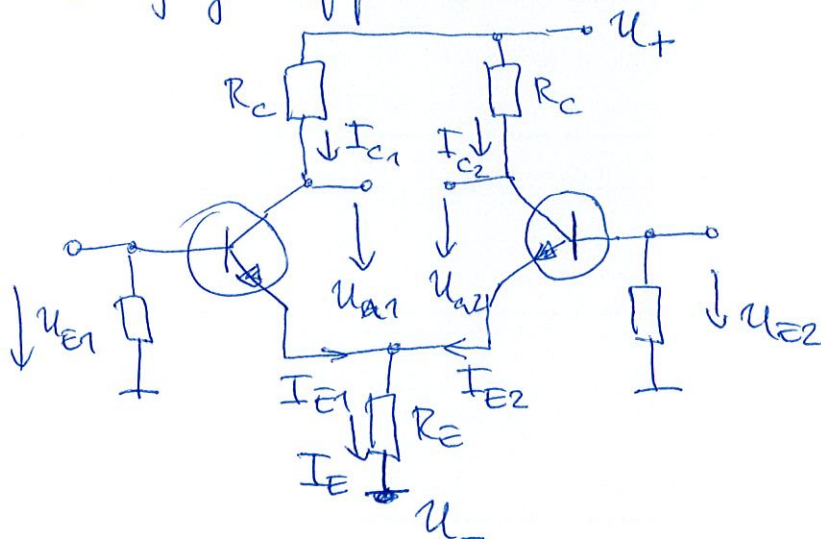 U+
R_C
R_C
I_C1
I_C2
U_a1
U_a2
U_E1
U_E2
I_E1
I_E2
R_E
I_E
U_-